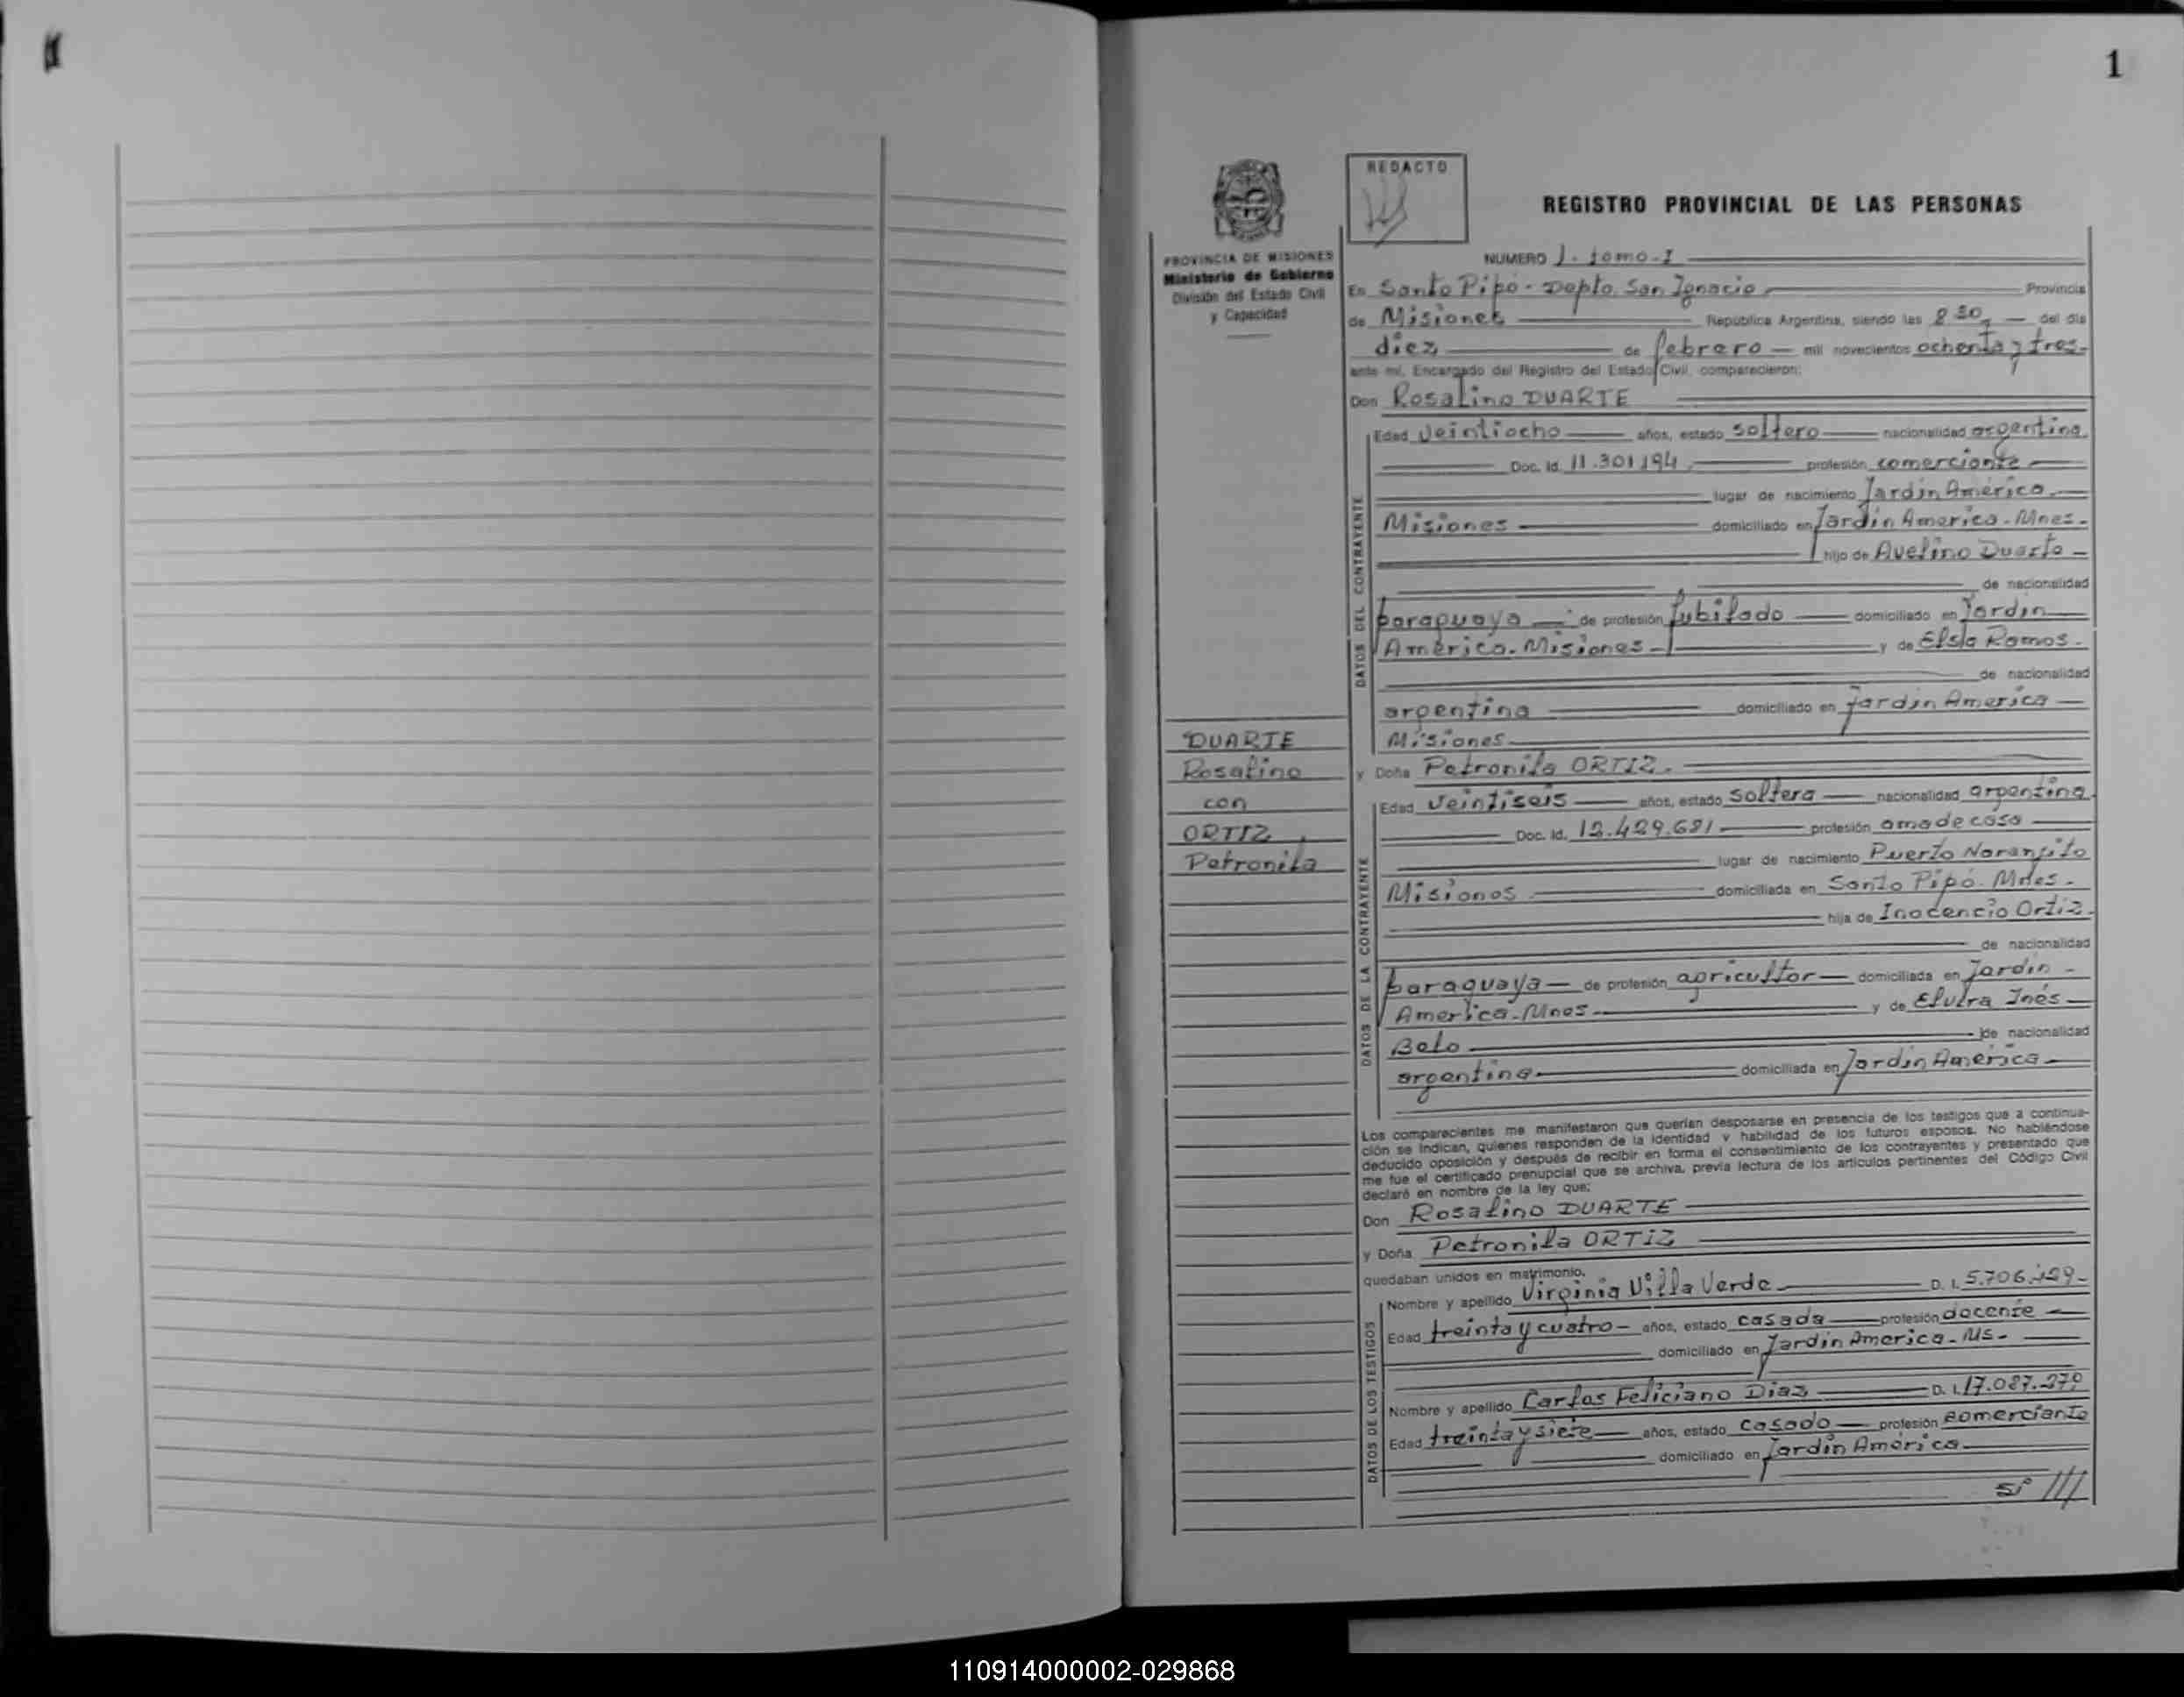 1
REDACTO
REGISTRO PROVINCIAL DE LAS PERSONAS
PROVINCIA DE MISIONES
Ministerio de Gobierno
División del Estado Civil
y Capacidad
NUMERO 1. tomo-I
En Santo Pipó - Depto. San Ignacio Provincia
de Misiones República Argentina, siendo las 8 30 del día
diez de febrero mil novecientos ochenta y tres
ante mí, Encargado del Registro del Estado Civil, comparecieron:
Don Rosalino DUARTE
Edad veintiocho años, estado soltero nacionalidad argentina
Doc. Id. 11.301.194 profesión comerciante
lugar de nacimiento Jardín América
Misiones domiciliado en Jardín America - Mnes.
hijo de Avelino Duarte
de nacionalidad
paraguaya de profesión Jubilado domiciliado en Jardín
América. Misiones y de Elsa Ramos.
de nacionalidad
argentina domiciliado en Jardín America
Misiones
y Doña Petronila ORTIZ.
Edad veintiseis años, estado soltera nacionalidad argentina
Doc. Id. 12.429.681 profesión ama de casa
lugar de nacimiento Puerto Naranjito
Misiones domiciliada en Santo Pipó. Mnes.
hija de Inocencio Ortiz
de nacionalidad
paraguaya de profesión agricultor domiciliada en Jardín
America. Mnes. y de Elvira Inés
Belo de nacionalidad
argentina domiciliada en Jardín America
DATOS DEL CONTRAYENTE
DATOS DE LA CONTRAYENTE
DUARTE
Rosalino
con
ORTIZ
Petronila
Los comparecientes me manifestaron que querían desposarse en presencia de los testigos que a continua-
ción se indican, quienes responden de la identidad y habilidad de los futuros esposos. No habiéndose
deducido oposición y después de recibir en forma el consentimiento de los contrayentes y presentado que
me fue el certificado prenupcial que se archiva, previa lectura de los artículos pertinentes del Código Civil
declaré en nombre de la ley que:
Don Rosalino DUARTE
y Doña Petronila ORTIZ
quedaban unidos en matrimonio.
Nombre y apellido Virginia Villa Verde D. I. 5.706.
Edad treinta y cuatro años, estado casada profesión docente
domiciliado en Jardín America - Ms-
Nombre y apellido Carlos Feliciano Diaz D. I. 17.087.
Edad treinta y siete años, estado casado profesión comerciante
domiciliado en Jardín América
DATOS DE LOS TESTIGOS
110914000002-029868